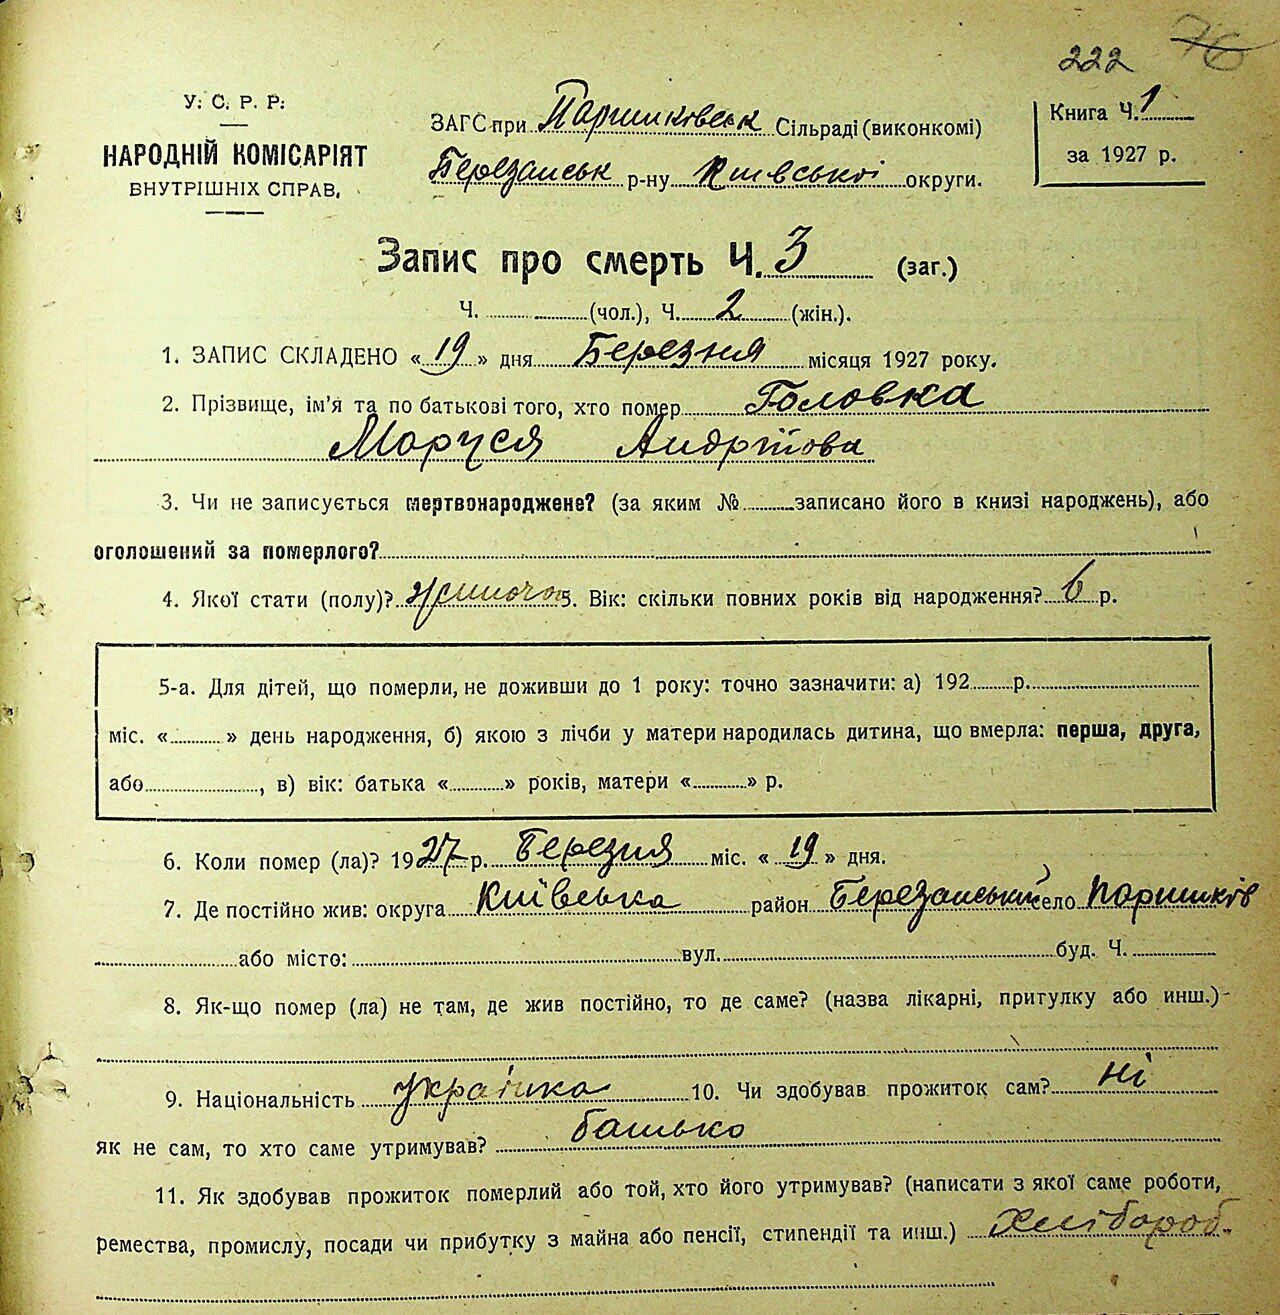 222 76
У. С. Р. Р.
НАРОДНІЙ КОМІСАРІЯТ
ВНУТРІШНІХ СПРАВ.
ЗАГС при Паришковськ Сільраді (виконкомі)
Березанськ р-ну Київської округи.
Книга Ч. 1
за 1927 р.
Запис про смерть Ч. 3 (заг.)
Ч. (чол.), Ч. 2 (жін.).
1. ЗАПИС СКЛАДЕНО « 19 » дня Березня місяця 1927 року.
2. Прізвище, ім'я та по батькові того, хто помер Головка
Маруся Андріїова
3. Чи не записується мертвонароджене? (за яким № записано його в книзі народжень), або
оголошений за померлого?
4. Якої стати (полу)? жіночої 5. Вік: скільки повних років від народження? 6 р.
5-а. Для дітей, що померли, не доживши до 1 року: точно зазначити: а) 192 р.
міс. « » день народження, б) якою з лічби у матери народилась дитина, що вмерла: перша, друга,
або , в) вік: батька « » років, матери « » р.
6. Коли помер (ла)? 1927 р. Березня міс. « 19 » дня.
7. Де постійно жив: округа Київська район Березанський село Паришків
або місто: вул. буд. Ч.
8. Як-що помер (ла) не там, де жив постійно, то де саме? (назва лікарні, притулку або инш.)
9. Національність українка 10. Чи здобував прожиток сам? ні
як не сам, то хто саме утримував? батько
11. Як здобував прожиток померлий або той, хто його утримував? (написати з якої саме роботи,
ремества, промислу, посади чи прибутку з майна або пенсії, стипендії та инш.) Хлібороб.